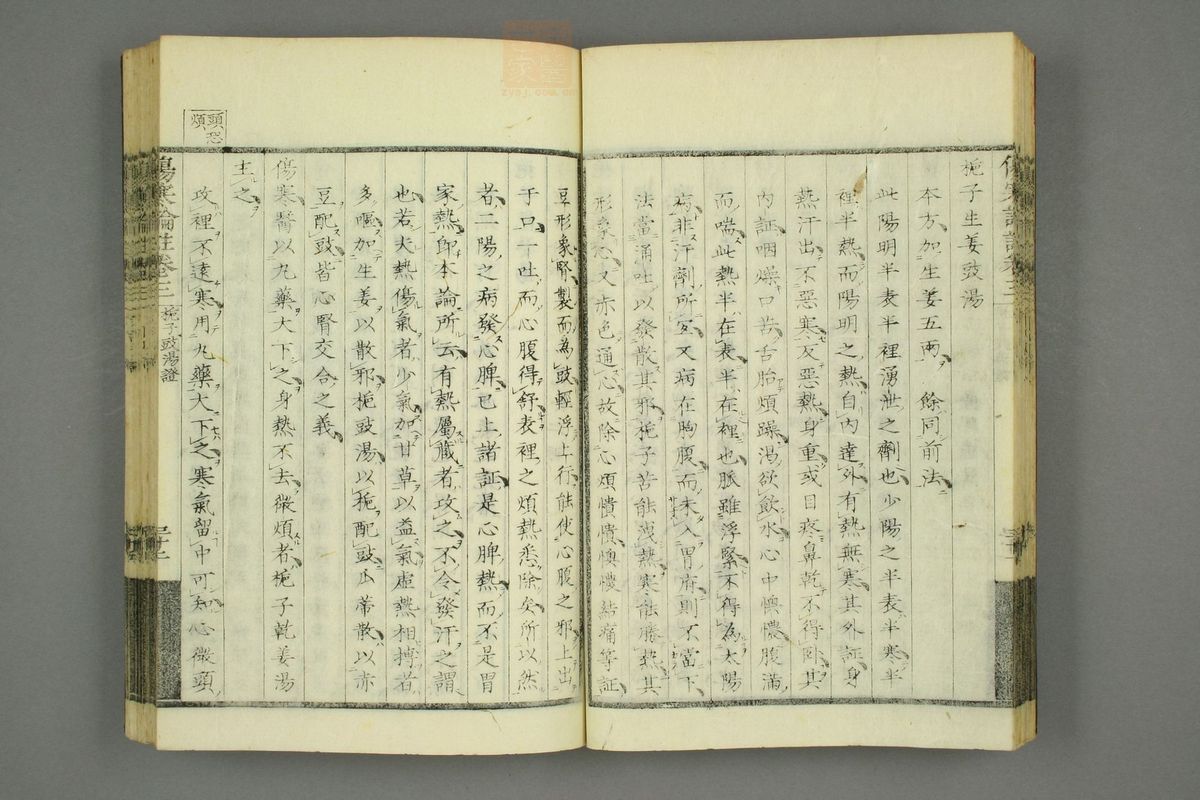 梔子生姜豉湯
本方加生姜五兩 餘同前法
此陽明半表半裡湧泄之劑也少陽之半表半寒半
裡半熱而陽明之熱自內達外有熱無寒其外証身
熱汗出不惡寒反惡熱身重或目疼鼻乾不得卧其
內証咽燥口苦舌胎煩躁渴欲飲水心中懊憹腹滿
而喘此熱半在表半在裡也脈雖浮緊不得為太陽
病非汗劑所宜又病在胸腹而未入胃府則不當下
法當涌吐以發散其邪梔子苦能泄熱寒能勝熱其
形象心又赤色通心故除心煩憒憒懊憹結痛等証
豆形象腎製而為豉輕浮上行能使心腹之邪上出
于口一吐而心腹得舒表裡之煩熱悉除矣所以然
者二陽之病發心脾已上諸証是心脾熱而不是胃
家熱即本論所云有熱屬臟者攻之不令發汗之謂
也若夫熱傷氣者少氣加甘草以益氣虛熱相搏者
多嘔加生姜以散邪梔豉湯以梔配豉瓜蒂散以赤
豆配豉皆心腎交合之義
傷寒醫以丸藥大下之身熱不去微煩者梔子乾姜湯
主之
攻裡不遠寒用丸藥大下之寒氣留中可知心微頭
頭恐
煩
傷寒論註卷三
梔子豉湯證